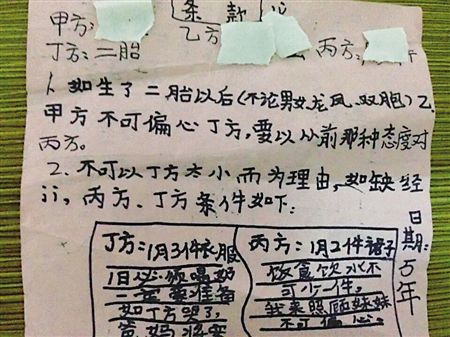 条款
甲方:
乙方
丙方:
丁方:二胎
1、如生了二胎以后(不论男女龙凤、双胞)乙、
甲方不可偏心丁方,要以从前那种态度对
丙方。
2、不可以丁方太小而为理由,如缺经
丙方、丁方条件如下:
丁方:1月3件衣服
1日必须喝奶
一定要准备
如丁方哭了,
爸、妈将要
丙方:1月2件裙子
饭食饮水不
可少一件。
我来照顾妹妹
不可偏心。
日期:5年